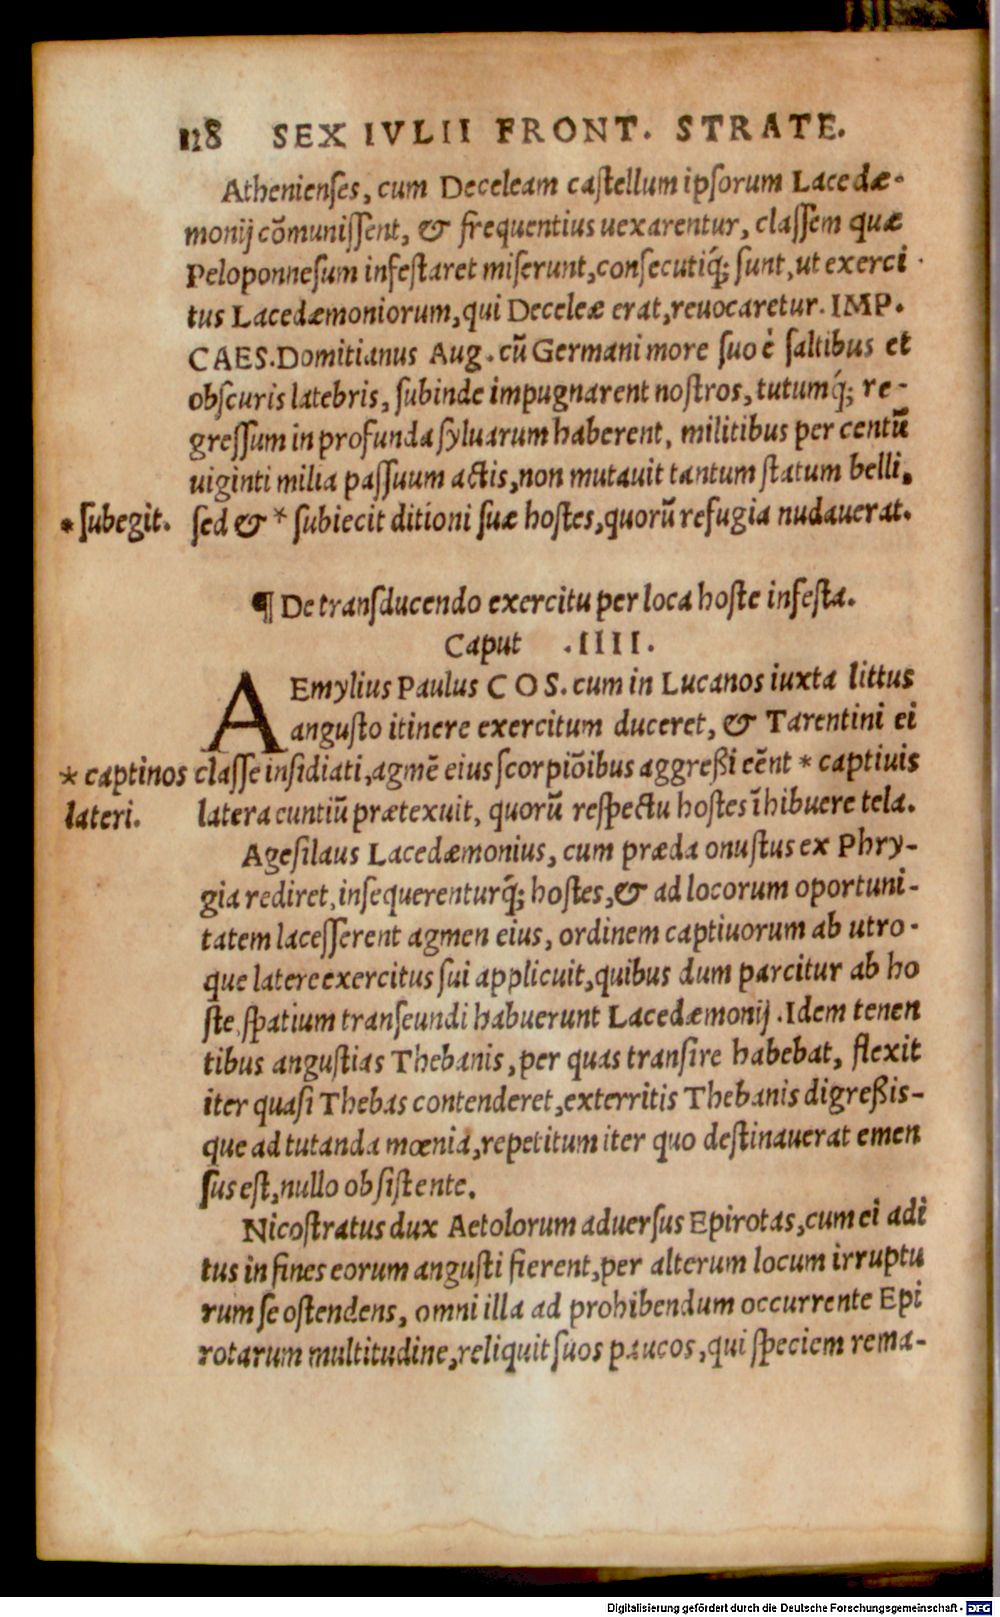 128 SEX IVLII FRONT. STRATE.
Athenienses, cum Deceleam castellum ipsorum Lacedæ-
monij cõmunissent, & frequentius uexarentur, classem quæ
Peloponnesum infestaret miserunt, consecutiq́; sunt, ut exerci
tus Lacedæmoniorum, qui Deceleæ erat, reuocaretur. IMP.
CAES. Domitianus Aug. cũ Germani more suo è saltibus et
obscuris latebris, subinde impugnarent nostros, tutumq́; re-
gressum in profunda syluarum haberent, militibus per centũ
uiginti milia passuum actis, non mutauit tantum statum belli,
* subegit. sed & * subiecit ditioni suæ hostes, quorũ refugia nudauerat.
¶ De transducendo exercitu per loca hoste infesta.
Caput .IIII.
AEmylius Paulus COS. cum in Lucanos iuxta littus
angusto itinere exercitum duceret, & Tarentini ei
* captinos classe insidiati, agmẽ eius scorpiõibus aggreßi eẽnt * captiuis
lateri. latera euntiũ prætexuit, quorũ respectu hostes ĩhibuere tela.
Agesilaus Lacedæmonius, cum præda onustus ex Phry-
gia rediret, insequerenturq́; hostes, & ad locorum oportuni-
tatem lacesserent agmen eius, ordinem captiuorum ab utro-
que latere exercitus sui applicuit, quibus dum parcitur ab ho
ste, spatium transeundi habuerunt Lacedæmonij. Idem tenen
tibus angustias Thebanis, per quas transire habebat, flexit
iter quasi Thebas contenderet, exterritis Thebanis digreßis-
que ad tutanda mœnia, repetitum iter quo destinauerat emen
sus est, nullo obsistente.
Nicostratus dux Aetolorum aduersus Epirotas, cum ei adi
tus in fines eorum angusti fierent, per alterum locum irruptu
rum se ostendens, omni illa ad prohibendum occurrente Epi
rotarum multitudine, reliquit suos paucos, qui speciem rema-
Digitalisierung gefördert durch die Deutsche Forschungsgemeinschaft - DFG